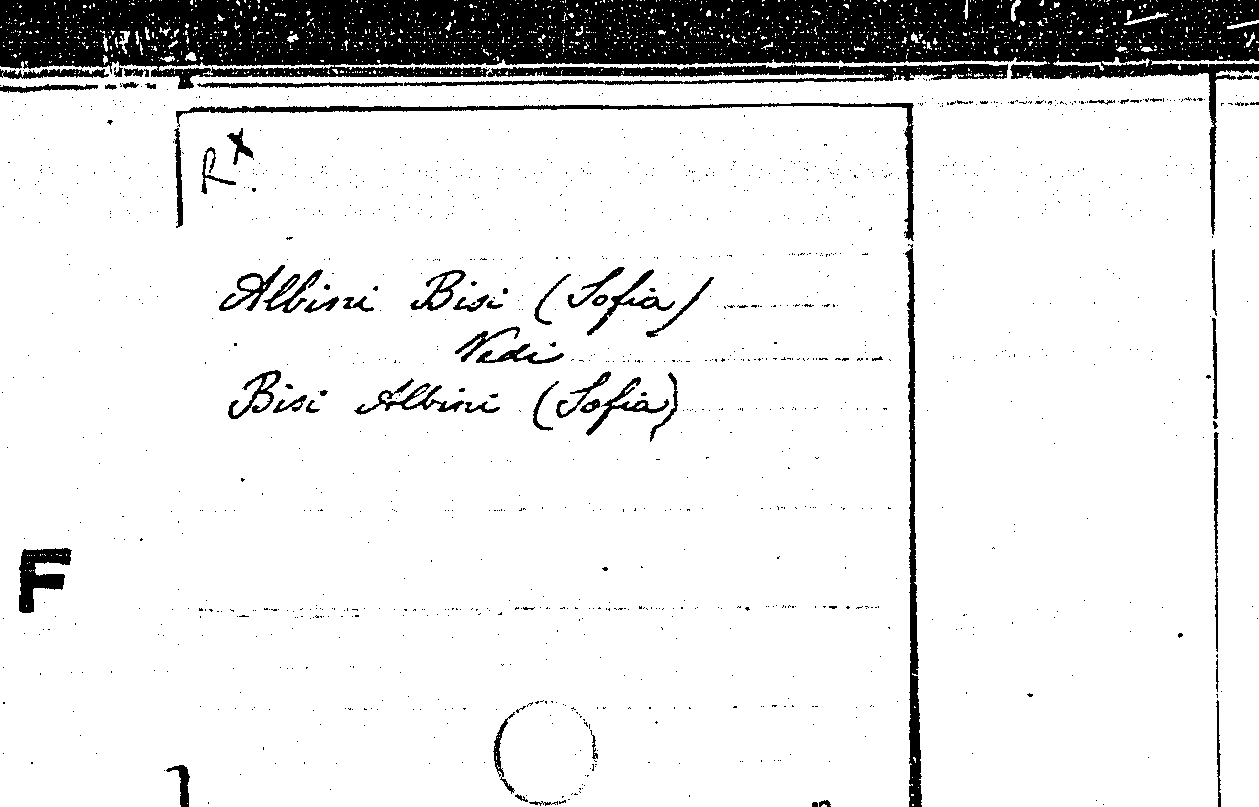 Rx
Albini Bisi (Sofia)
Vedi
Bisi Albini (Sofia)
F